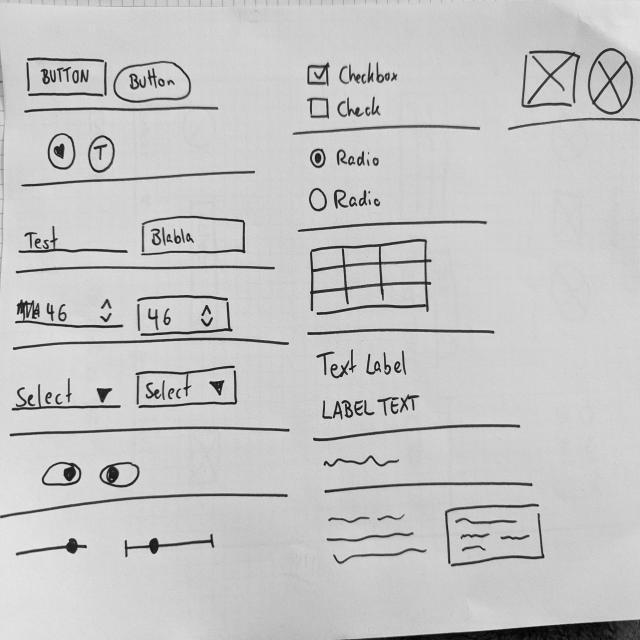 BUTTON Button
T
Test Blabla
46 46
Select Select
Checkbox
Check
Radio
Radio
Text Label
LABEL TEXT